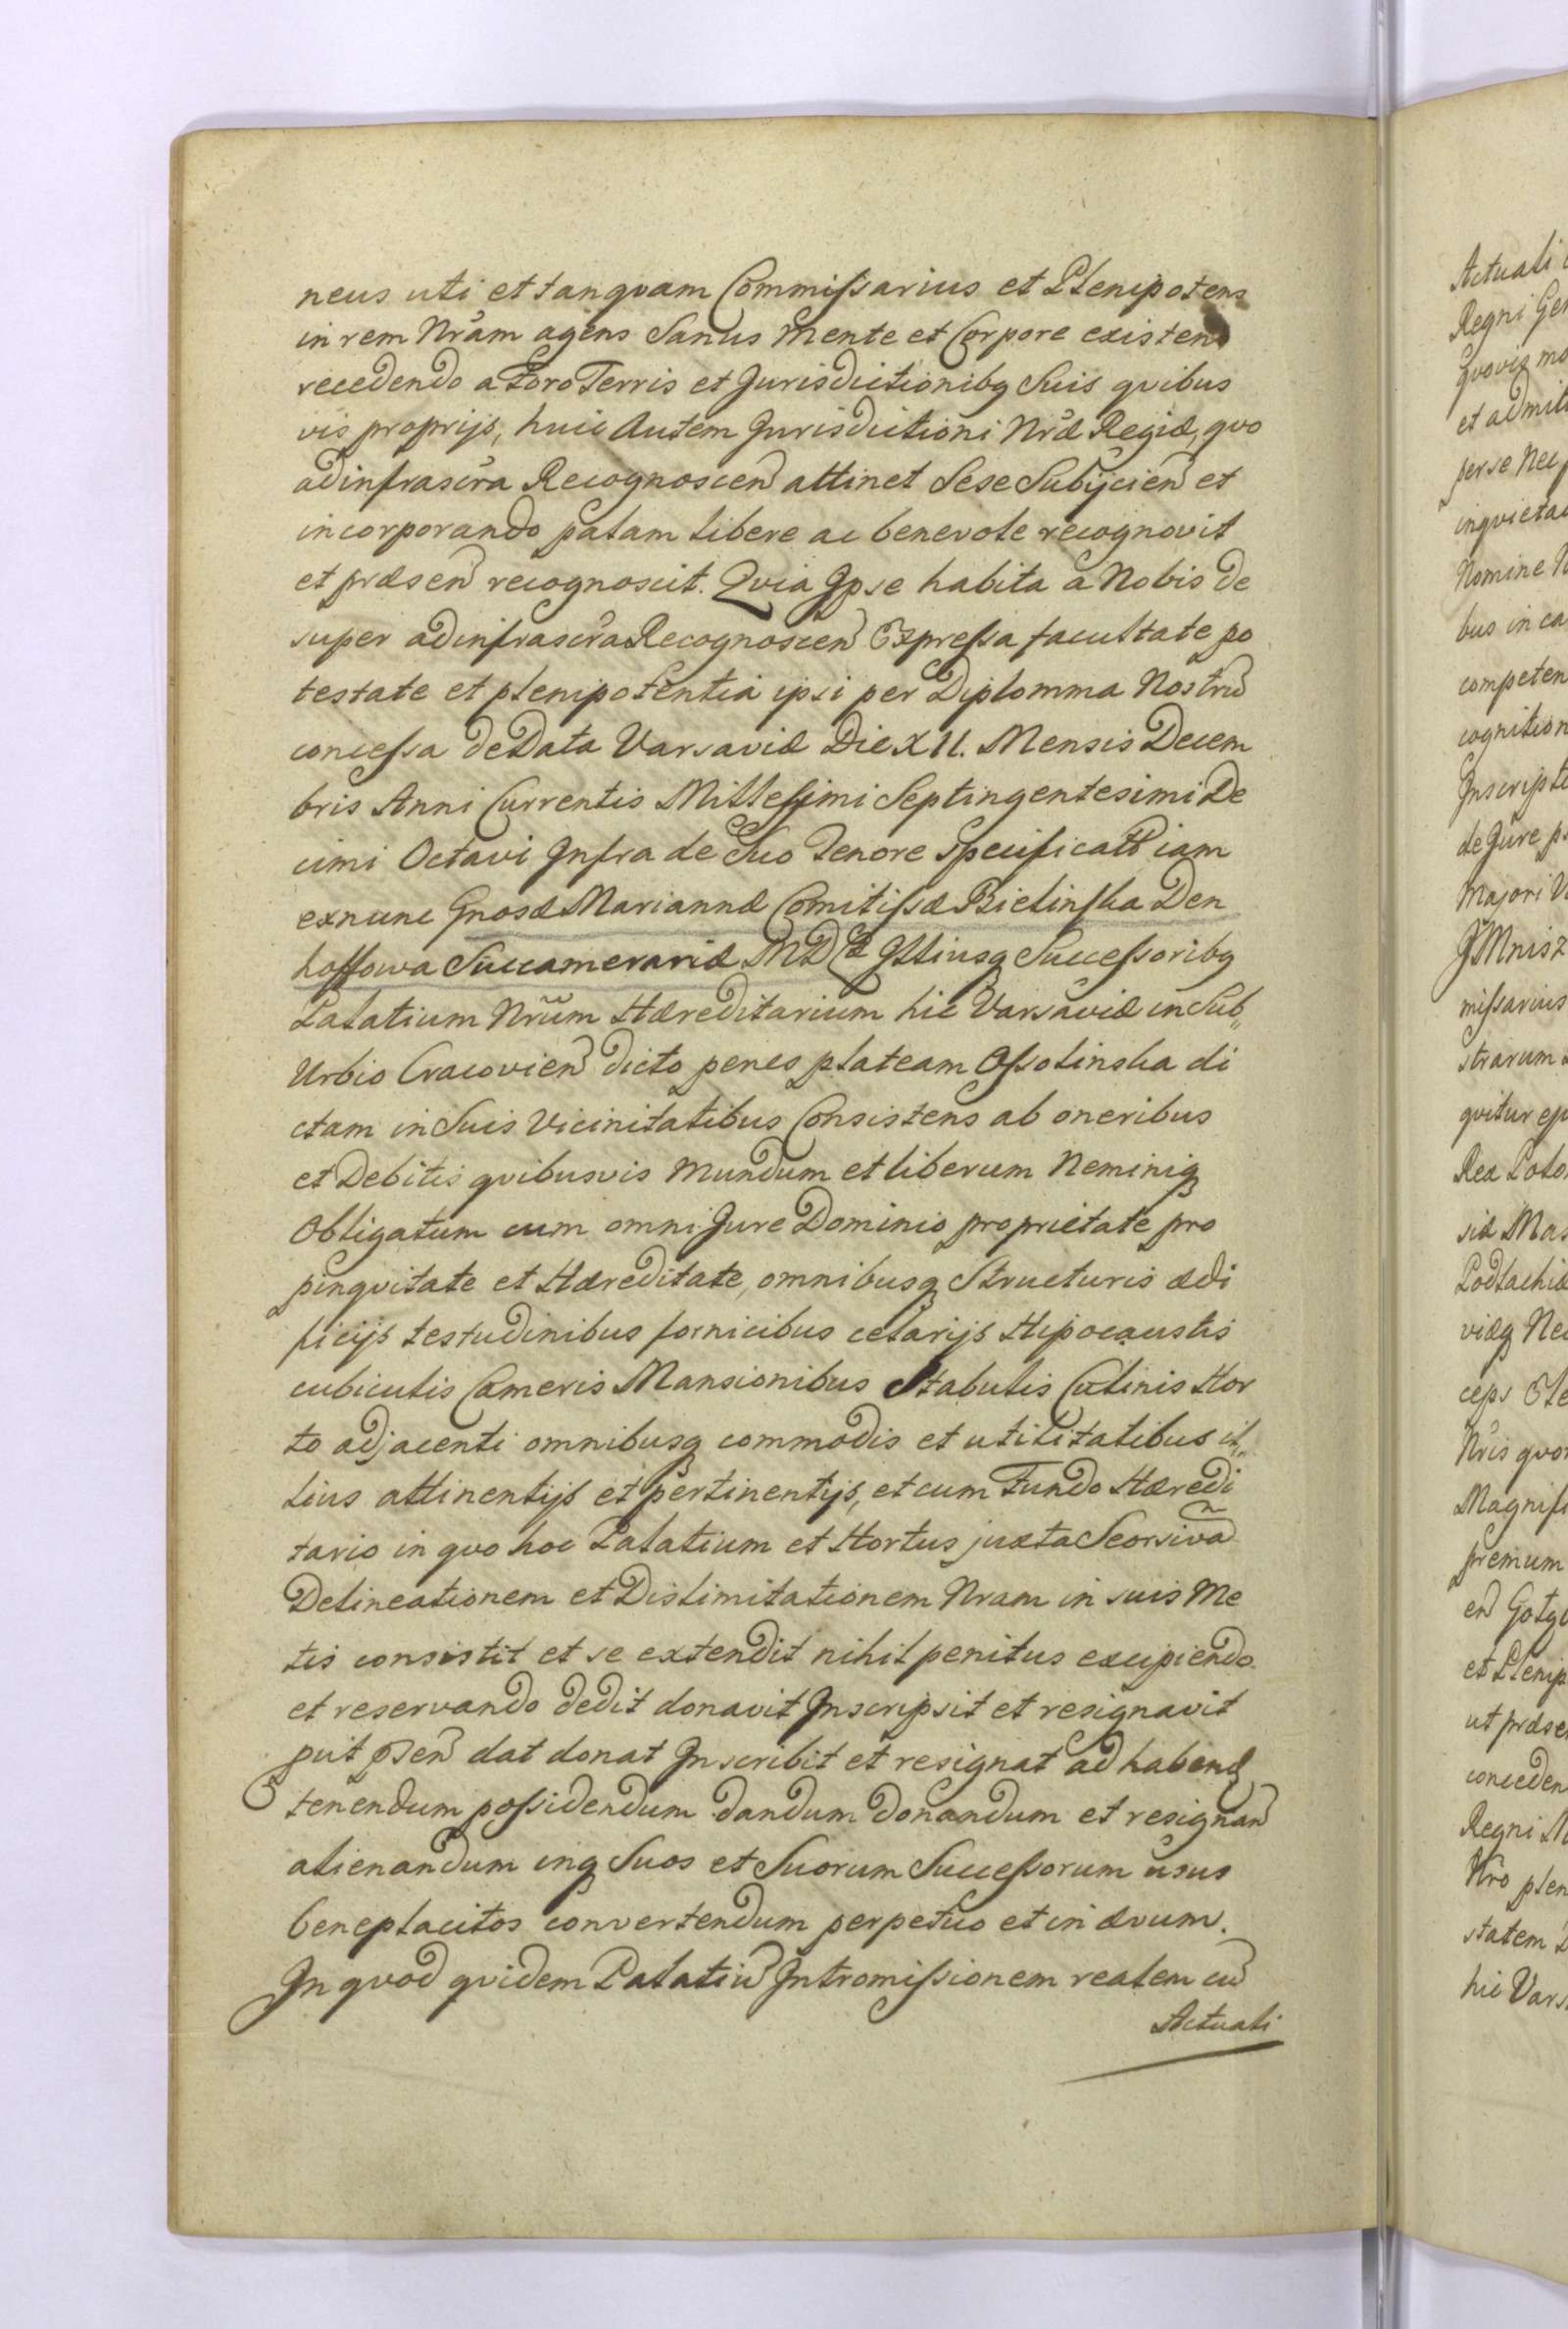 neus uti et tanqvam Commissarius et Plenipotens
in rem Nr̃am agens Sanus Mente et Corpore existens
recedendo a Foro Terris et Jurisdictionibq Suis qvibus
vis proprijs, huic Autem Jurisdictioni Nræ Regiæ, qvo
ad infrascr̃a Recognoscen̄ attinet Sese Subÿcien̄ et
incorporando palam libere ac benevole recognovit
et præsen̄ recognoscit. Qvia Ipse habita a Nobis de
super ad infrascr̃a Recognoscen̄ Expressa facultate po
testate et plenipotentia ipsi per Diplomma Nostrū
concessa de Data Varsaviæ Die XII. Mensis Decem
bris Anni Currentis Millesimi Septingentesimi De
cimi Octavi Infra de Suo Tenore Specificatt iam
exnunc Gnosæ Mariannæ Comitissæ Bielinska Den
hoffowa Succamerariæ MDL Illiusq Successoribq
Palatium Nrũm Hæreditarium hic Varsaviæ in Sub„
Urbio Cracovien̄ dicto penes plateam Ossolinska di
ctam in Suis Vicinitatibus Consistens ab oneribus
et Debitis qvibusvis Mundum et liberum Neminiq
Obligatum cum omni Jure Dominio proprietate pro
pinqvitate et Hæreditate, omnibusq Structuris ædi
ficijs testudinibus fornicibus celarijs Hipocaustis
cubiculis Cameris Mansionibus Stabulis Culinis Hor
to adjacenti omnibusq commodis et utilitatibus il„
lius attinentijs et pertinentijs, et cum Fundo Hæredi
tario in qvo hoc Palatium et Hortus juxta Seorsivã
Delineationem et Dislimitationem Nram in suis Me
tis consistit et se extendit nihil penitus excipiendo
et reservando dedit donavit Inscripsit et resignavit
puit psen̄ dat donat Inscribit et resignat ad habend
tenendum possidendum dandum donandum et resignan̄
alienandum inq Suos et Suorum Successorum usus
beneplacitos convertendum perpetuo et in ævum.
In qvod qvidem Palatiū Intromissionem realem cū
Actuali
Actuali
Regni Ge
qvovis mo
et admit
per se Nec
inqvieta
Nomine
bus in ca
competen
cognition
Inscript
de Jure p
Majori V
J Mnisz
missarius
strarum
qvitur e
Rex Polo
siæ Mas
Podlachiæ
viæq Ne
ceps Ele
Nris qvo
Magnifi
premum
en̄ Gotz
et Plenip
ut præse
conceden
Regni M
Nro plen
statem
hic Vars